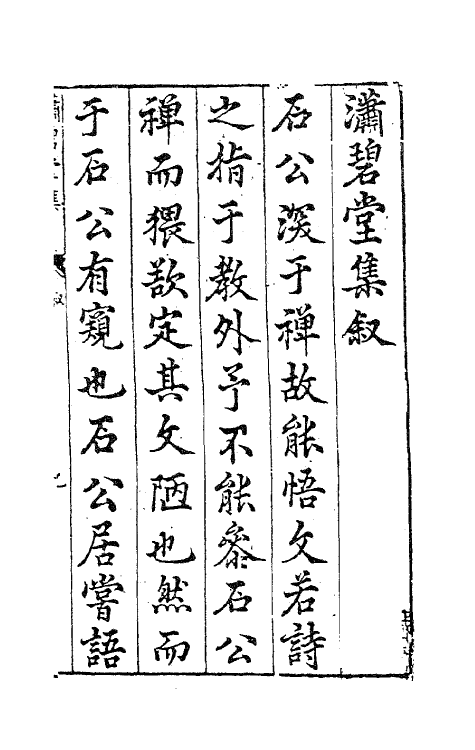 瀟碧堂集叙
石公深于禅故能悟文若詩
之指于教外予不能叅石公
禅而猥歆定其文陋也然而
于石公有窺也石公居嘗語